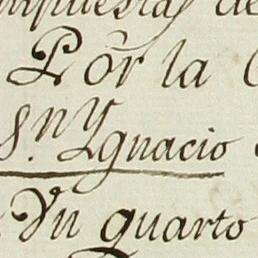 mpuestas de
Por la
S.n Ygnacio
Un quarto